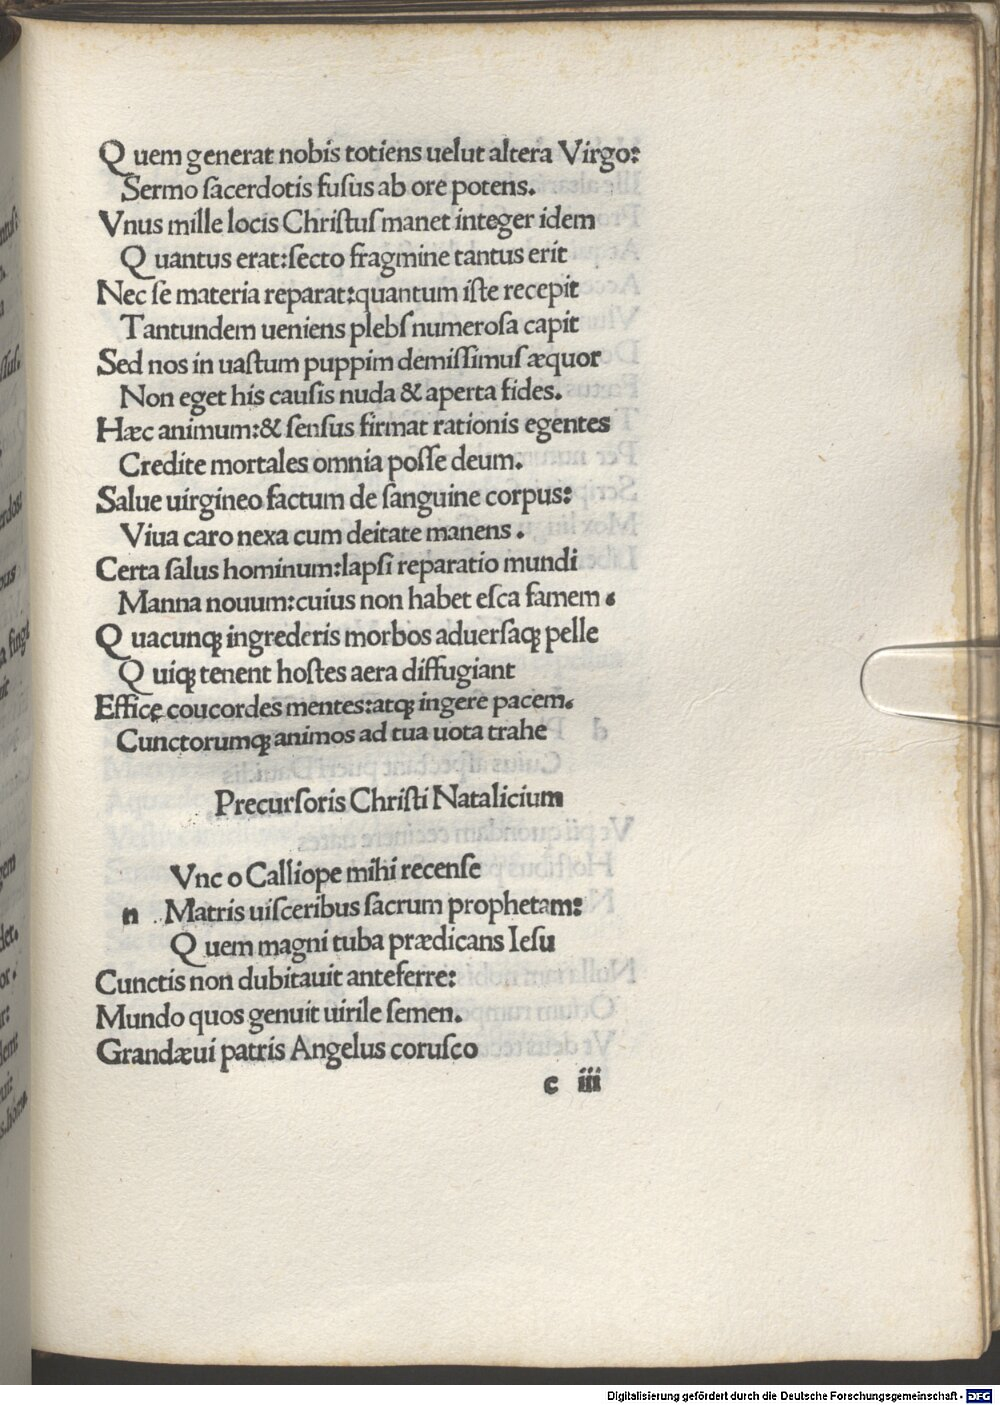 Quem generat nobis totiens uelut altera Virgo:
Sermo ſacerdotis fuſus ab ore potens.
Vnus mille locis Chriſtuſ manet integer idem
Quantus erat:ſecto fragmine tantus erit
Nec ſe materia reparat:quantum iſte recepit
Tantundem ueniens plebſ numeroſa capit
Sed nos in uaſtum puppim demiſſimuſ æquor
Non eget his cauſis nuda & aperta fides.
Hæc animum:& ſenſus firmat rationis egentes
Credite mortales omnia poſſe deum.
Salue uirgineo factum de ſanguine corpus:
Viua caro nexa cum deitate manens.
Certa ſalus hominum:lapſi reparatio mundi
Manna nouum:cuius non habet eſca famem.
Quacunqꝫ ingrederis morbos aduerſaqꝫ pelle
Quiqꝫ tenent hoſtes aera diffugiant
Effice coucordes mentes:atqꝫ ingere pacem.
Cunctorumqꝫ animos ad tua uota trahe
Precurſoris Chriſti Natalicium
Vnc o Calliope mihi recenſe
n Matris uiſceribus ſacrum prophetam:
Quem magni tuba prædicans Ieſu
Cunctis non dubitauit anteferre:
Mundo quos genuit uirile ſemen.
Grandæui patris Angelus coruſco
c iii
Digitalisierung gefördert durch die Deutsche Forschungsgemeinschaft - DFG